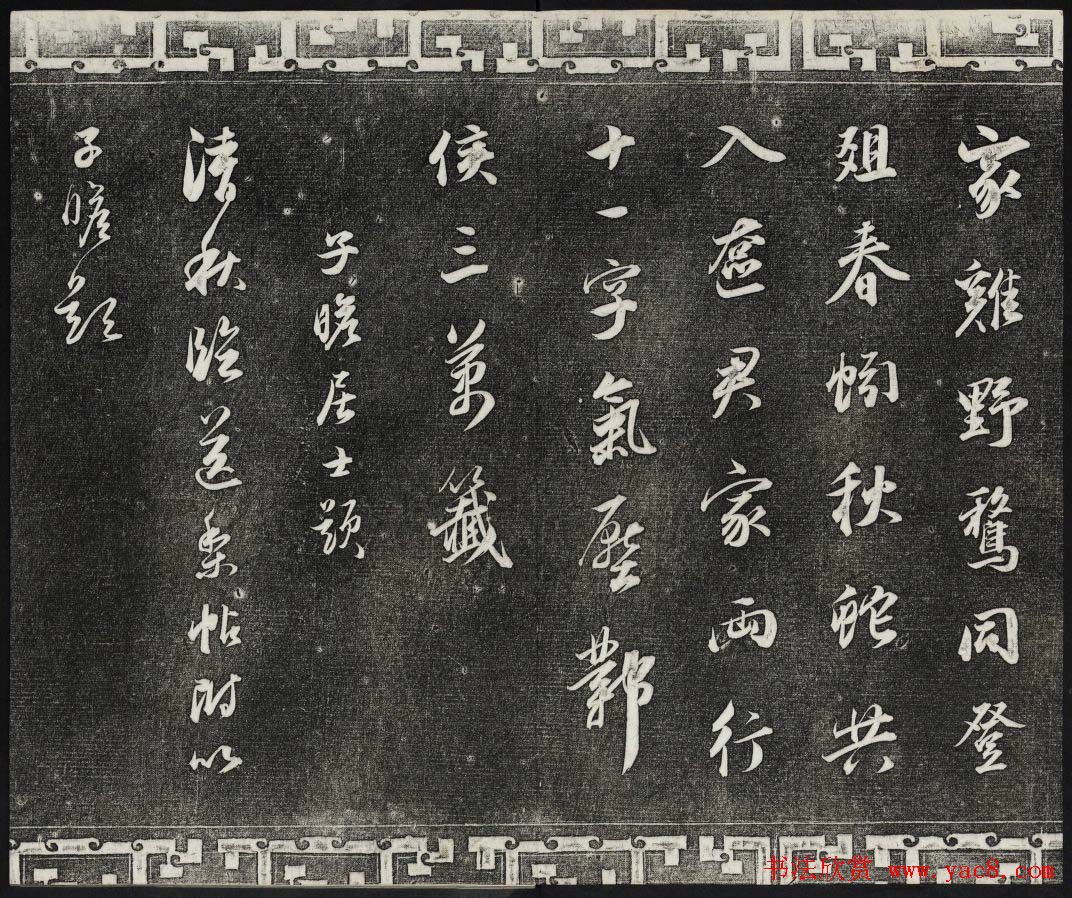 家雞野鶩同登
俎春蚓秋蛇共
入奩君家兩行
十一字氣壓鄴
侯三萬籤
子瞻居士題
清秋臨送梨帖附以
子瞻題
书法欣赏 www.yac8.com